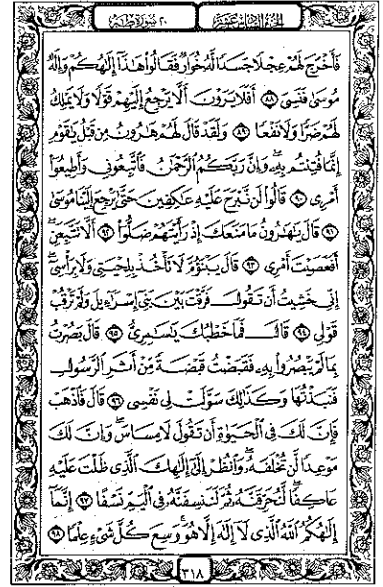 الجزء السادس عشر ٢٠ سورة طه
فَأَخْرَجَ لَهُمْ عِجْلًا جَسَدًا لَّهُ خُوَارٌ فَقَالُوا هَٰذَا إِلَٰهُكُمْ وَإِلَٰهُ
مُوسَىٰ فَنَسِيَ ٨٨ أَفَلَا يَرَوْنَ أَلَّا يَرْجِعُ إِلَيْهِمْ قَوْلًا وَلَا يَمْلِكُ
لَهُمْ ضَرًّا وَلَا نَفْعًا ٨٩ وَلَقَدْ قَالَ لَهُمْ هَٰرُونُ مِن قَبْلُ يَٰقَوْمِ
إِنَّمَا فُتِنتُم بِهِۦ وَإِنَّ رَبَّكُمُ الرَّحْمَٰنُ فَاتَّبِعُونِي وَأَطِيعُوا
أَمْرِي ٩٠ قَالُوا لَن نَّبْرَحَ عَلَيْهِ عَٰكِفِينَ حَتَّىٰ يَرْجِعَ إِلَيْنَا مُوسَىٰ
٩١ قَالَ يَٰهَٰرُونُ مَا مَنَعَكَ إِذْ رَأَيْتَهُمْ ضَلُّوا ٩٢ أَلَّا تَتَّبِعَنِ
أَفَعَصَيْتَ أَمْرِي ٩٣ قَالَ يَبْنَؤُمَّ لَا تَأْخُذْ بِلِحْيَتِي وَلَا بِرَأْسِي
إِنِّي خَشِيتُ أَن تَقُولَ فَرَّقْتَ بَيْنَ بَنِي إِسْرَٰٓءِيلَ وَلَمْ تَرْقُبْ
قَوْلِي ٩٤ قَالَ فَمَا خَطْبُكَ يَٰسَٰمِرِيُّ ٩٥ قَالَ بَصُرْتُ
بِمَا لَمْ يَبْصُرُوا بِهِۦ فَقَبَضْتُ قَبْضَةً مِّنْ أَثَرِ الرَّسُولِ
فَنَبَذْتُهَا وَكَذَٰلِكَ سَوَّلَتْ لِي نَفْسِي ٩٦ قَالَ فَاذْهَبْ
فَإِنَّ لَكَ فِي الْحَيَوٰةِ أَن تَقُولَ لَا مِسَاسَ وَإِنَّ لَكَ
مَوْعِدًا لَّن تُخْلَفَهُۥ وَانظُرْ إِلَىٰ إِلَٰهِكَ الَّذِي ظَلْتَ عَلَيْهِ
عَاكِفًا لَّنُحَرِّقَنَّهُۥ ثُمَّ لَنَنسِفَنَّهُۥ فِي الْيَمِّ نَسْفًا ٩٧ إِنَّمَا
إِلَٰهُكُمُ اللَّهُ الَّذِي لَا إِلَٰهَ إِلَّا هُوَ وَسِعَ كُلَّ شَيْءٍ عِلْمًا ٩٨
٣١٨